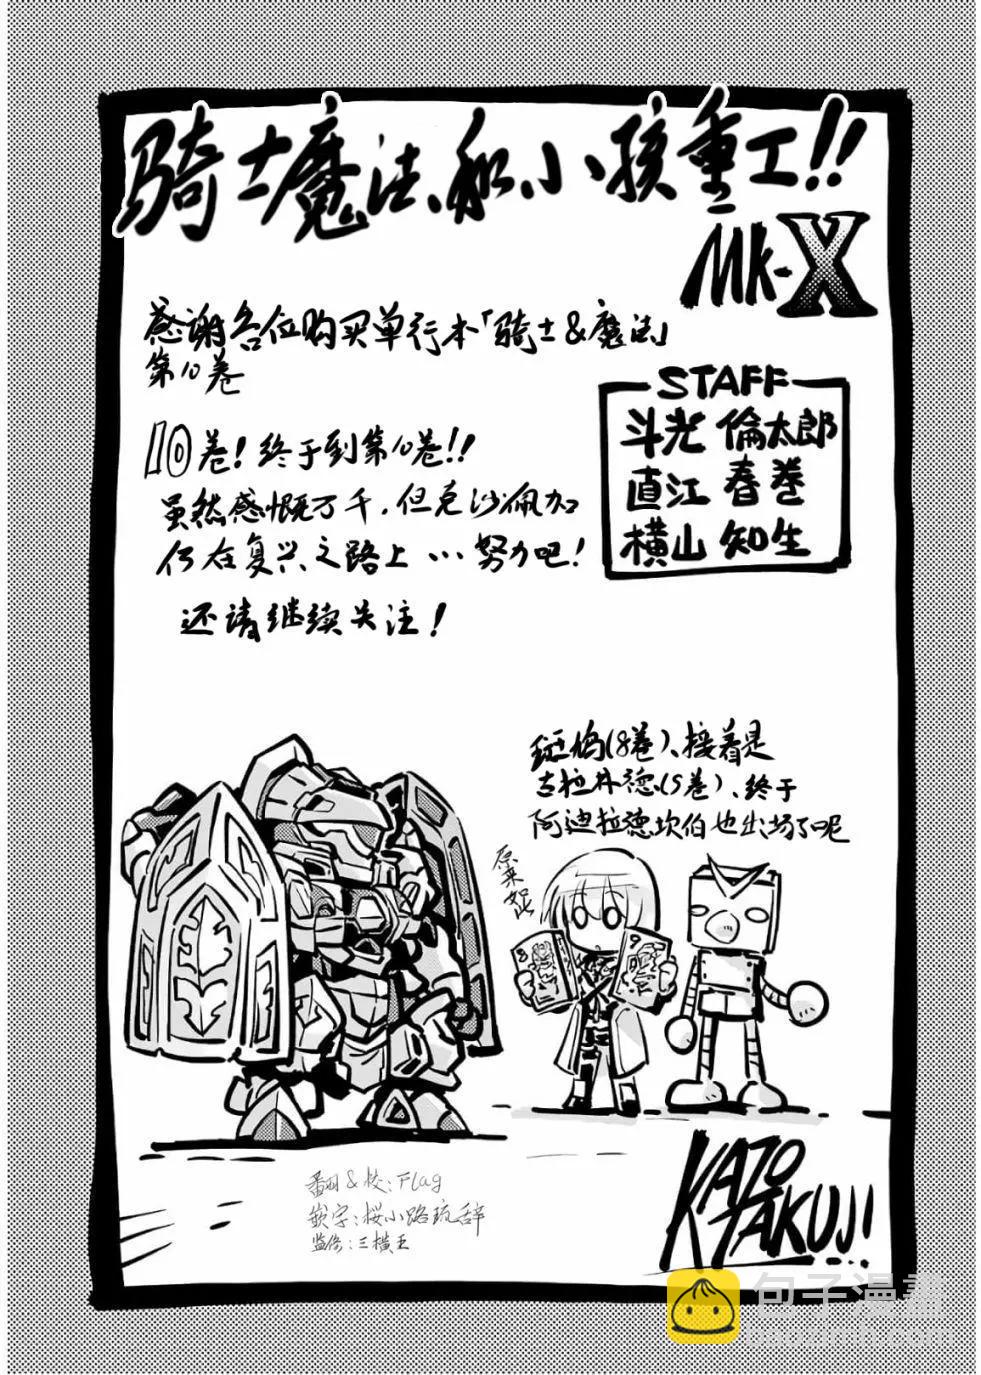 骑士魔法和小孩重工!!
MK-X
感谢各位购买单行本「骑士&魔法」
第10卷
STAFF
斗光 倫太郎
直江 春巻
横山 知生
10卷！终于到第10卷!!
虽然感慨万千，但克沙佩加
仍在复兴之路上…努力吧！
还请继续关注！
斑鸠(8卷)、接着是
古拉林德(5卷)、终于
阿迪拉德坎伯也出场了呢
原来如此
8
9
翻&校:Flag
嵌字:桜小路琉辞
监修:三横王
KATO TAKUJI
包子漫畫
baozimh.com